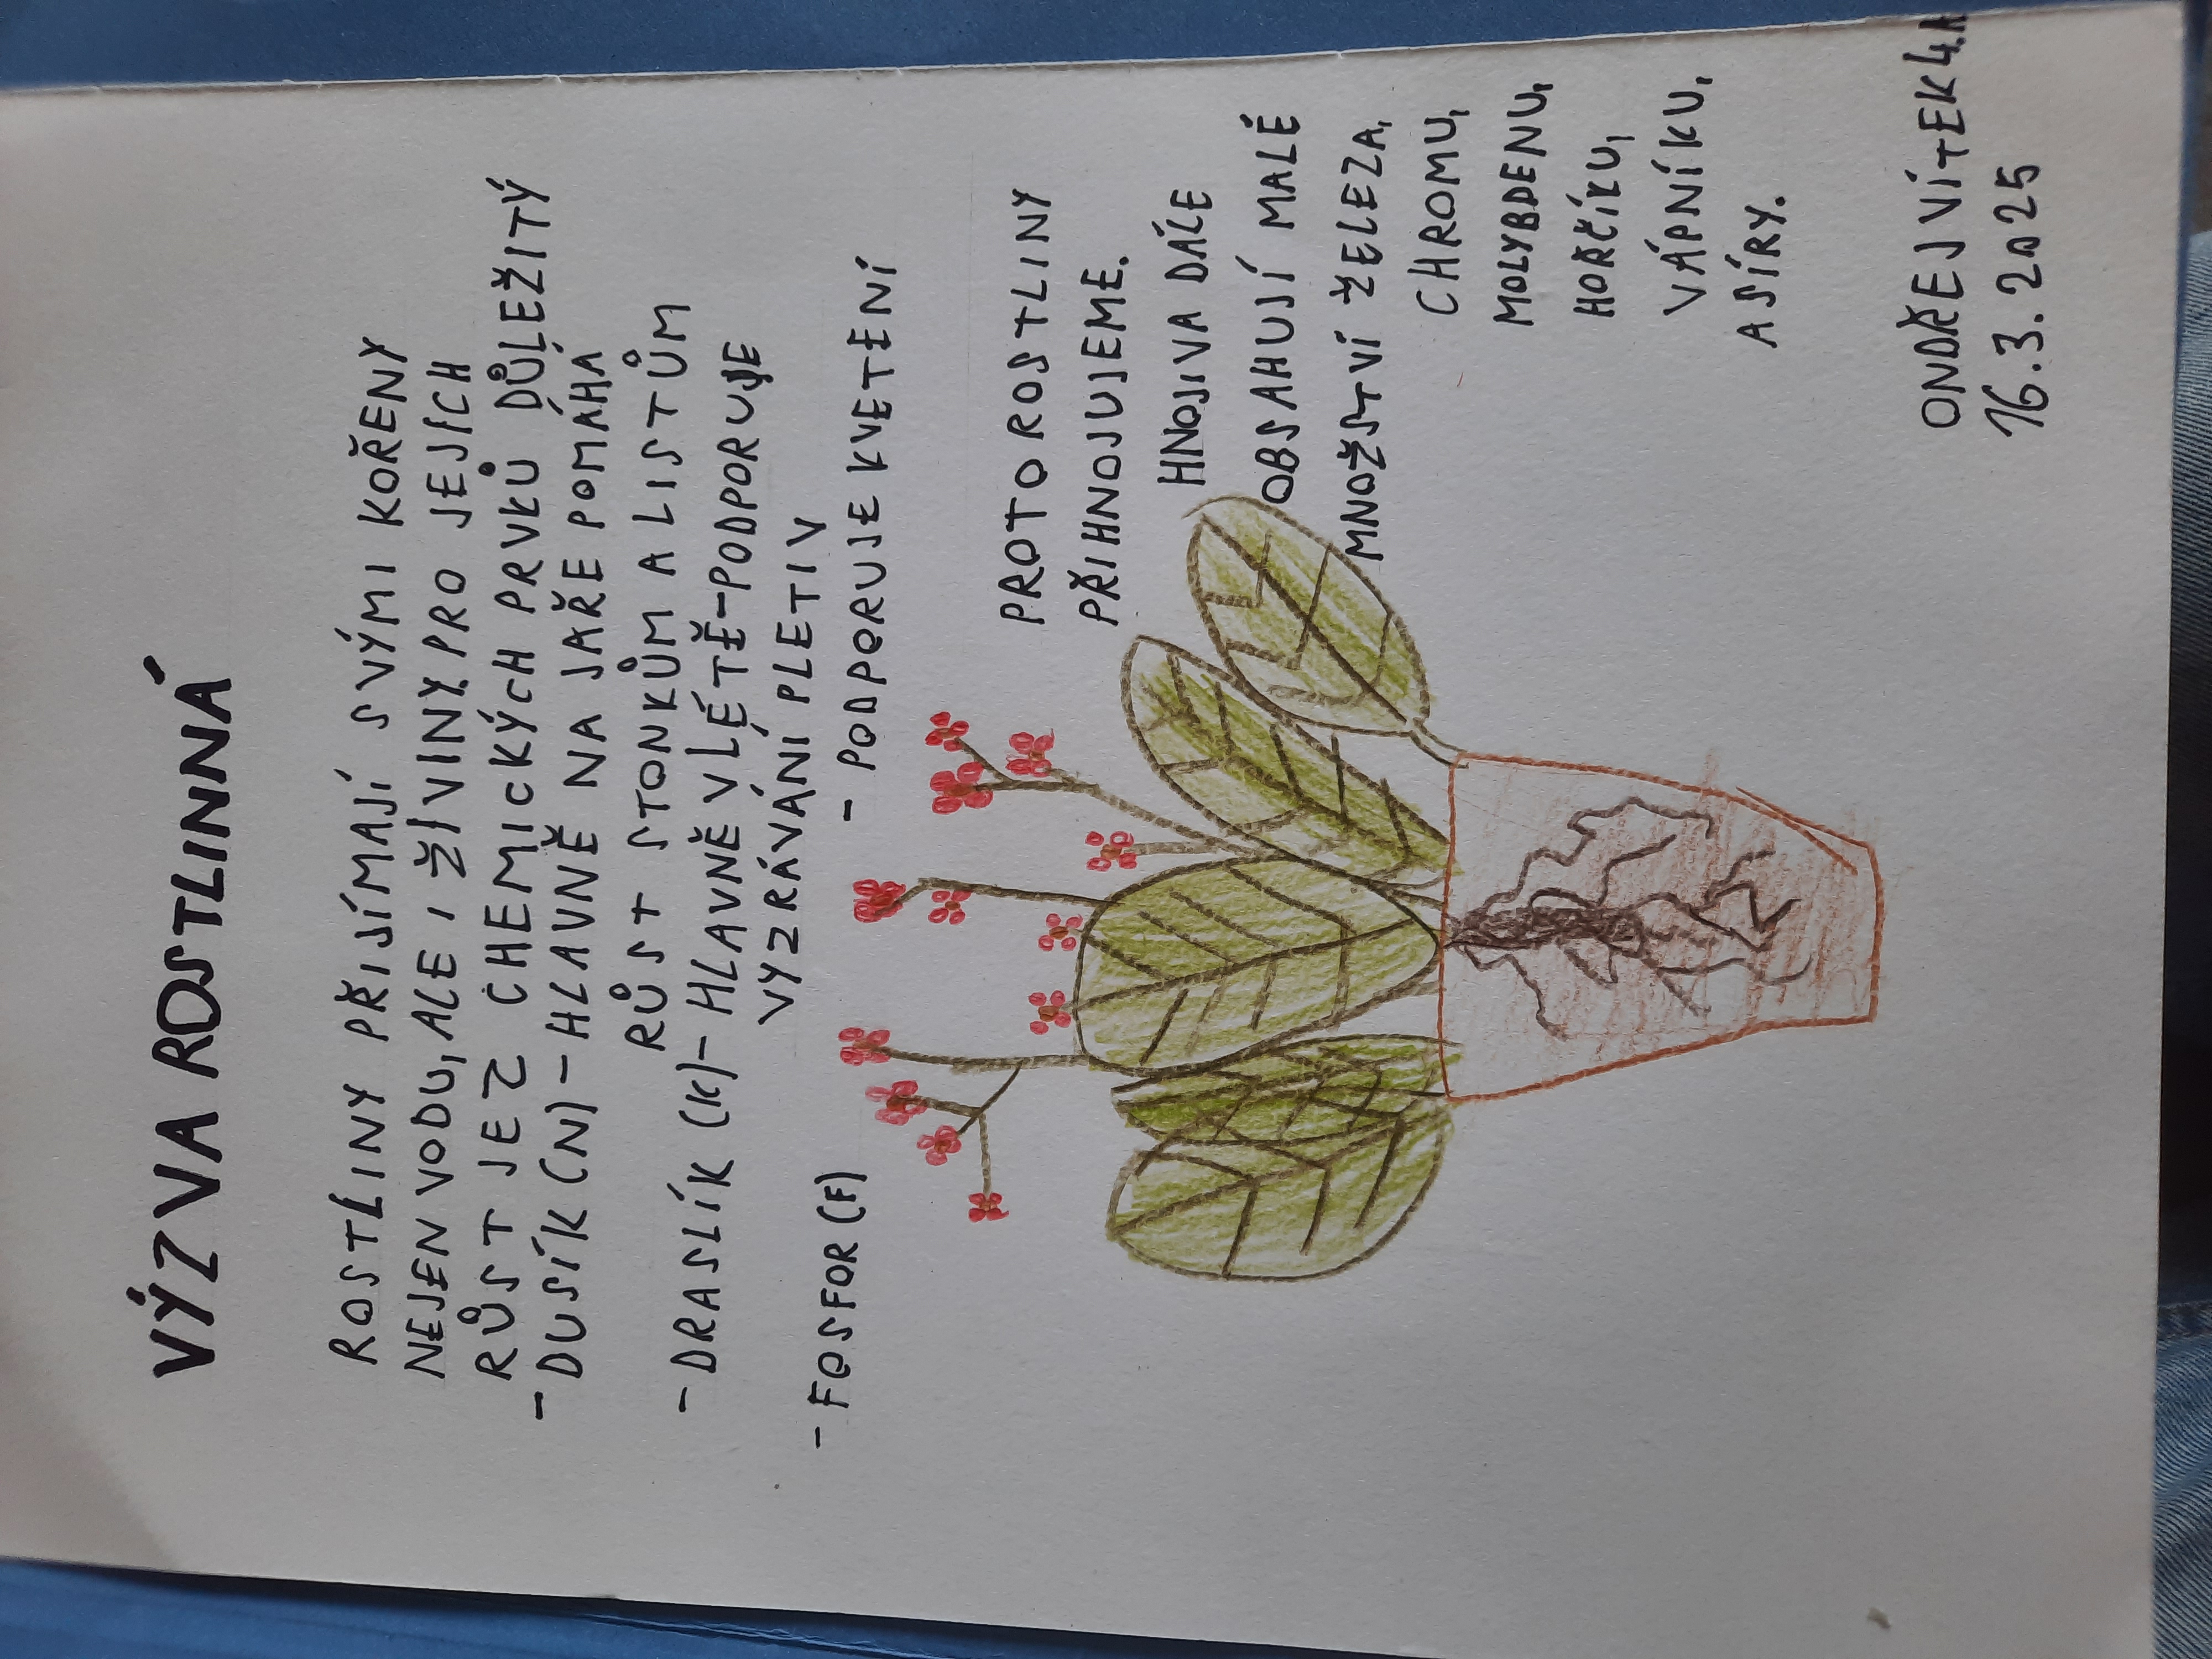 VÝZVA ROSTLINNÁ
ROSTLINY PŘIJÍMAJÍ SVÝMI KOŘENY
NEJEN VODU, ALE I ŽIVINY. PRO JEJICH
RŮST JE Z CHEMICKÝCH PRVKŮ DŮLEŽITÝ
- DUSÍK (N) - HLAVNĚ NA JAŘE POMÁHÁ
RŮST STONKŮM A LISTŮM
- DRASLÍK (K) - HLAVNĚ V LÉTĚ - PODPORUJE
VYZRÁVÁNI PLETIV
- FOSFOR (F) - PODPORUJE KVETENÍ
PROTO ROSTLINY
PŘIHNOJUJEME.
HNOJIVA DÁLE
OBSAHUJÍ MALÉ
MNOŽSTVÍ ŽELEZA,
CHROMU,
MOLYBDENU,
HOŘČÍKU,
VÁPNÍKU,
A SÍRY.
ONDŘEJ VÍTEK 4.A
16.3.2025